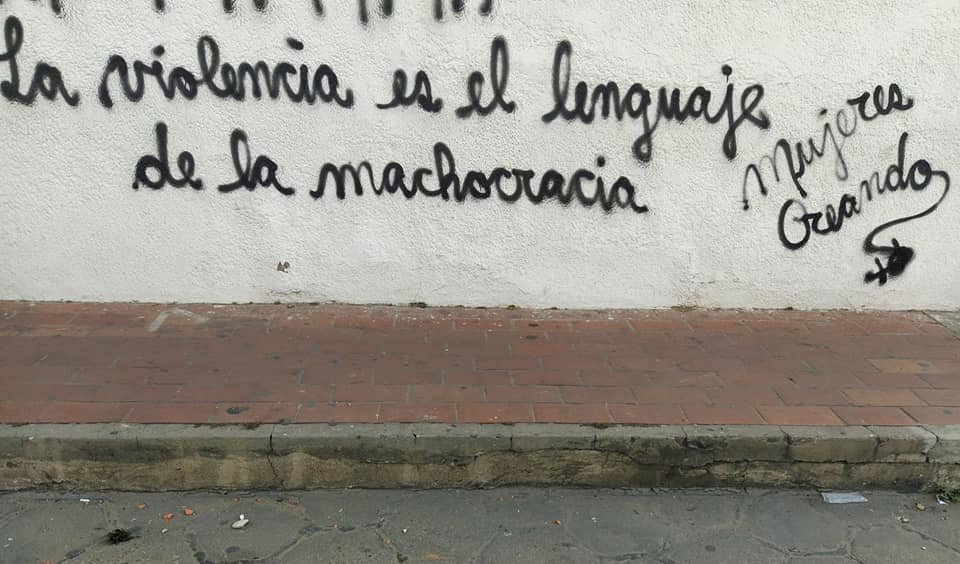 La violencia es el lenguaje
de la machocracia
Mujeres
Creando